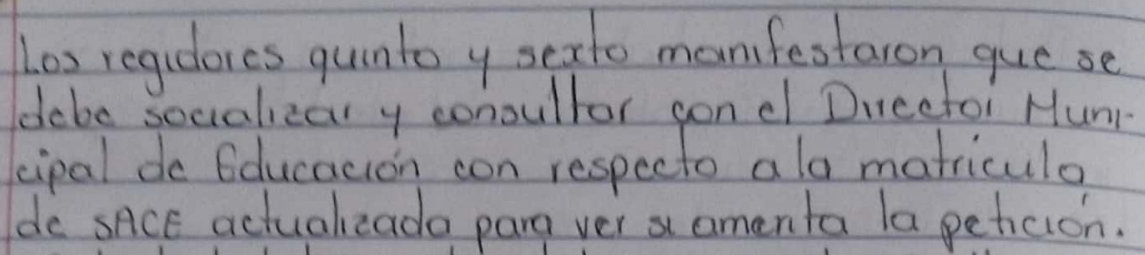 Los regidores quinto y sexto manifestaron que se
debe socializar y consultar con el Director Muni-
cipal de Educación con respecto a la matricula
de SACE actualizada para ver si amenta la petición.